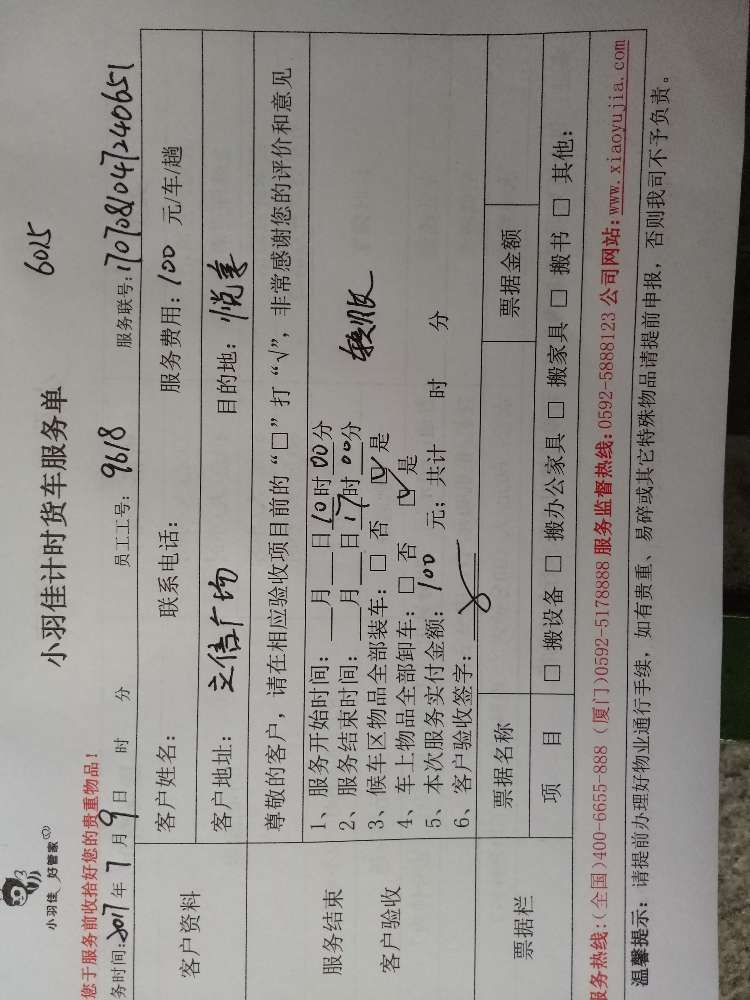 小羽佳 好管家
小羽佳计时货车服务单
6015
您于服务前收拾好您的贵重物品！
务时间：2017年7月9日 时 分 员工工号：9618 服务联号：1707081047240651
客户资料
客户姓名： 联系电话： 服务费用：100 元/车/趟
客户地址：立信广场 目的地：悦美
服务结束
客户验收
尊敬的客户，请在相应验收项目前的“□”打“√”，非常感谢您的评价和意见
1、服务开始时间：__月__日10时00分
2、服务结束时间：__月__日17时00分
3、候车区物品全部装车：□ 否 ☑ 是
4、车上物品全部卸车：□ 否 ☑ 是
5、本次服务实付金额：100 元；共计 时 分
6、客户验收签字：
票据栏
票据名称 票据金额 元
项 目 □ 搬设备 □ 搬办公家具 □ 搬家具 □ 搬书 □ 其他：
服务热线：（全国）400-6655-888（厦门）0592-5178888 服务监督热线：0592-5888123 公司网站：www.xiaoyujia.com
温馨提示：请提前办理好物业通行手续，如有贵重、易碎或其它特殊物品请提前申报，否则我司不予负责。